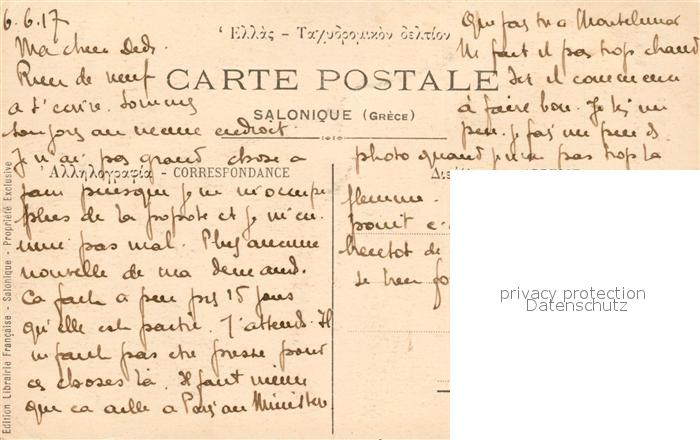 6.6.17
Ma chere Dedé.
Rien de neuf
a t'écrire. Sommes
toujours au meme endroit.
Je n'ai pas grand chose a
faire puisque je ne m'occupe
plus de la popote et je m'en-
nuie pas mal. Pas aucune
nouvelle de ma demande.
Ca fait a peu pres 15 jours
qu'elle est partie. J'attends. Il
ne faut pas etre pressé pour
ces choses là. Il faut meme
que ca aille a Paris au Ministere
Ἑλλάς - Ταχυδρομικὸν δελτίον
CARTE POSTALE
SALONIQUE (GRÈCE)
Ἀλληλογραφία - CORRESPONDANCE
Que fais tu a Montelimar
Ne fait il pas trop chaud
Ici il commence
à faire bon. Je lis un
peu. je fais un peu de
photo quand je n'ai pas trop la
flemme.
point
bientot de
le bien
Edition Librairie Française - Salonique - Propriété Exclusive
privacy protection
Datenschutz